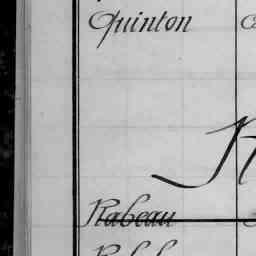 Quinton
R
Rabeau